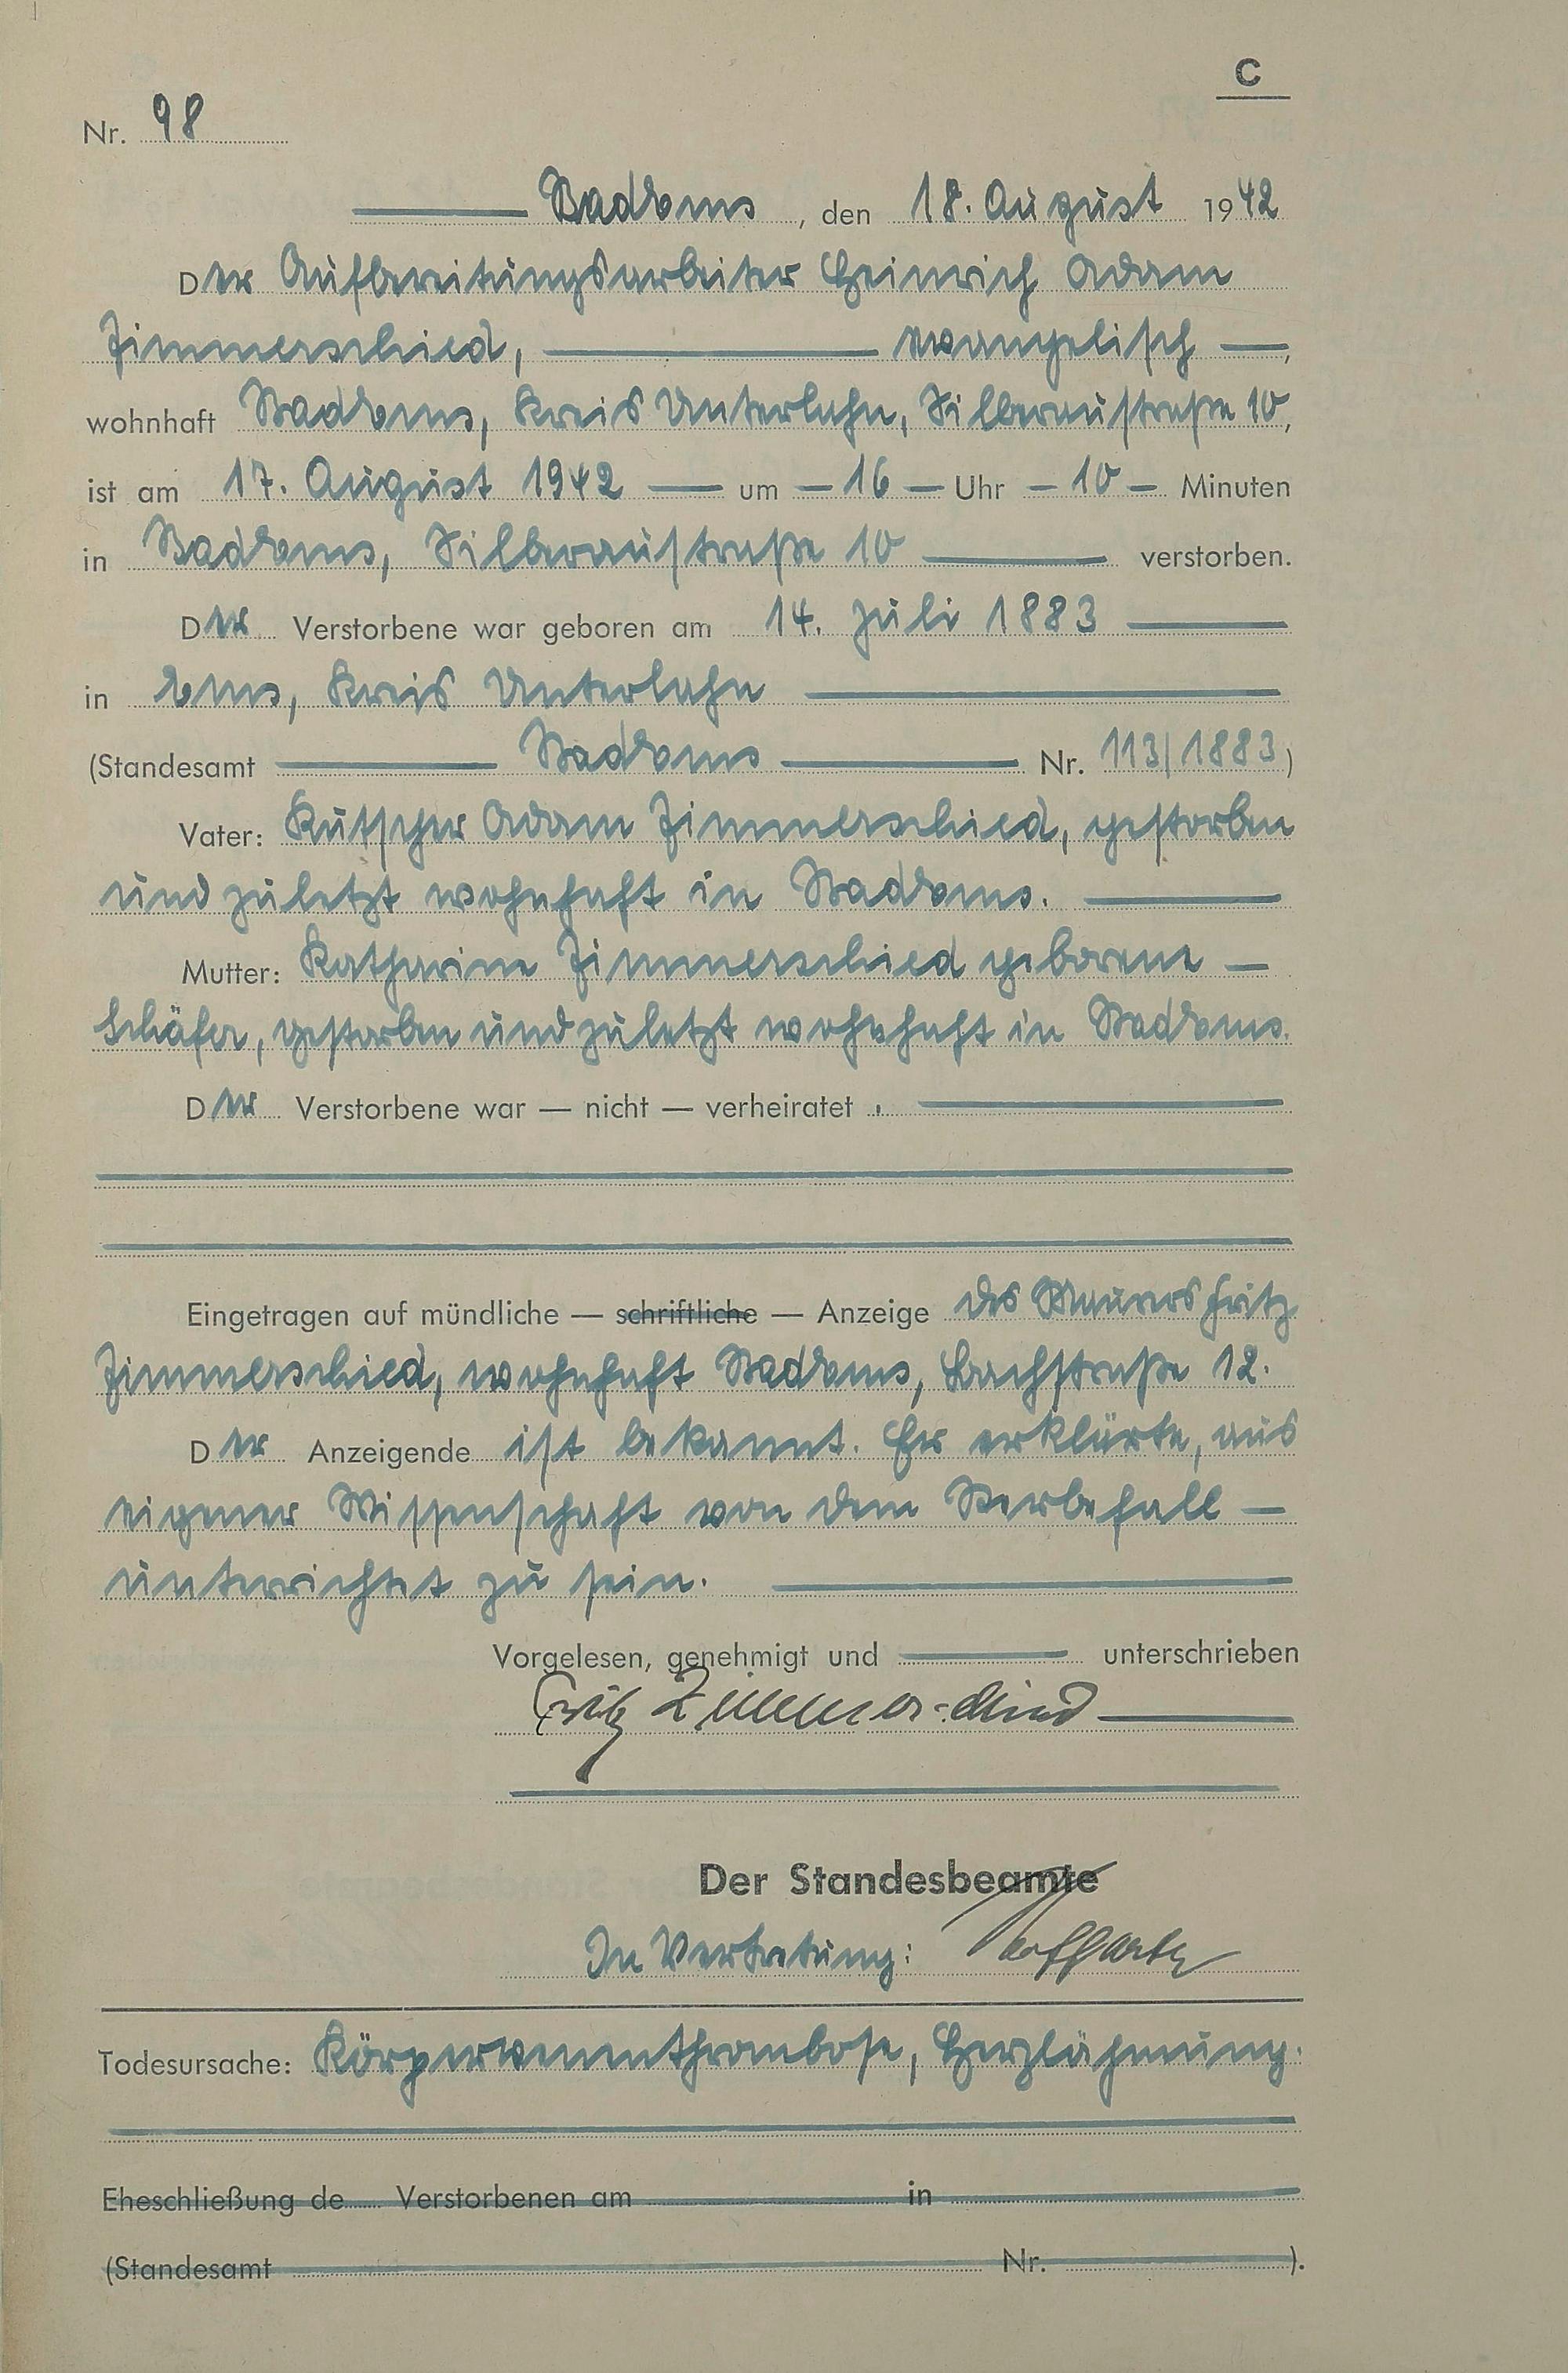 C
Nr. 98
Bad Ems, den 18. August 1942
Der Aufbereitungsarbeiter Heinrich Adam
Zimmerschied, evangelisch —,
wohnhaft Bad Ems, Kreis Unterlahn, Silberaustraße 10,
ist am 17. August 1942 — um — 16 — Uhr — 10 — Minuten
in Bad Ems, Silberaustraße 10 verstorben.
Der Verstorbene war geboren am 14. Juli 1883
in Ems, Kreis Unterlahn
(Standesamt Bad Ems Nr. 113/1883)
Vater: Kutscher Adam Zimmerschied, gestorben
und zuletzt wohnhaft in Bad Ems.
Mutter: Katharine Zimmerschied geborene —
Schäfer, gestorben und zuletzt wohnhaft in Bad Ems.
Der Verstorbene war — nicht — verheiratet.
Eingetragen auf mündliche — schriftliche — Anzeige des Maurers Fritz
Zimmerschied, wohnhaft Bad Ems, Bachstraße 12.
Der Anzeigende ist bekannt. Er erklärte, aus
eigener Wissenschaft von dem Sterbefall —
unterrichtet zu sein.
Vorgelesen, genehmigt und unterschrieben
Fritz Zimmerschied
Der Standesbeamte
In Vertretung:
Todesursache: Körpervenenthrombose, Herzlähmung.
Eheschließung de Verstorbenen am in
(Standesamt Nr. ).